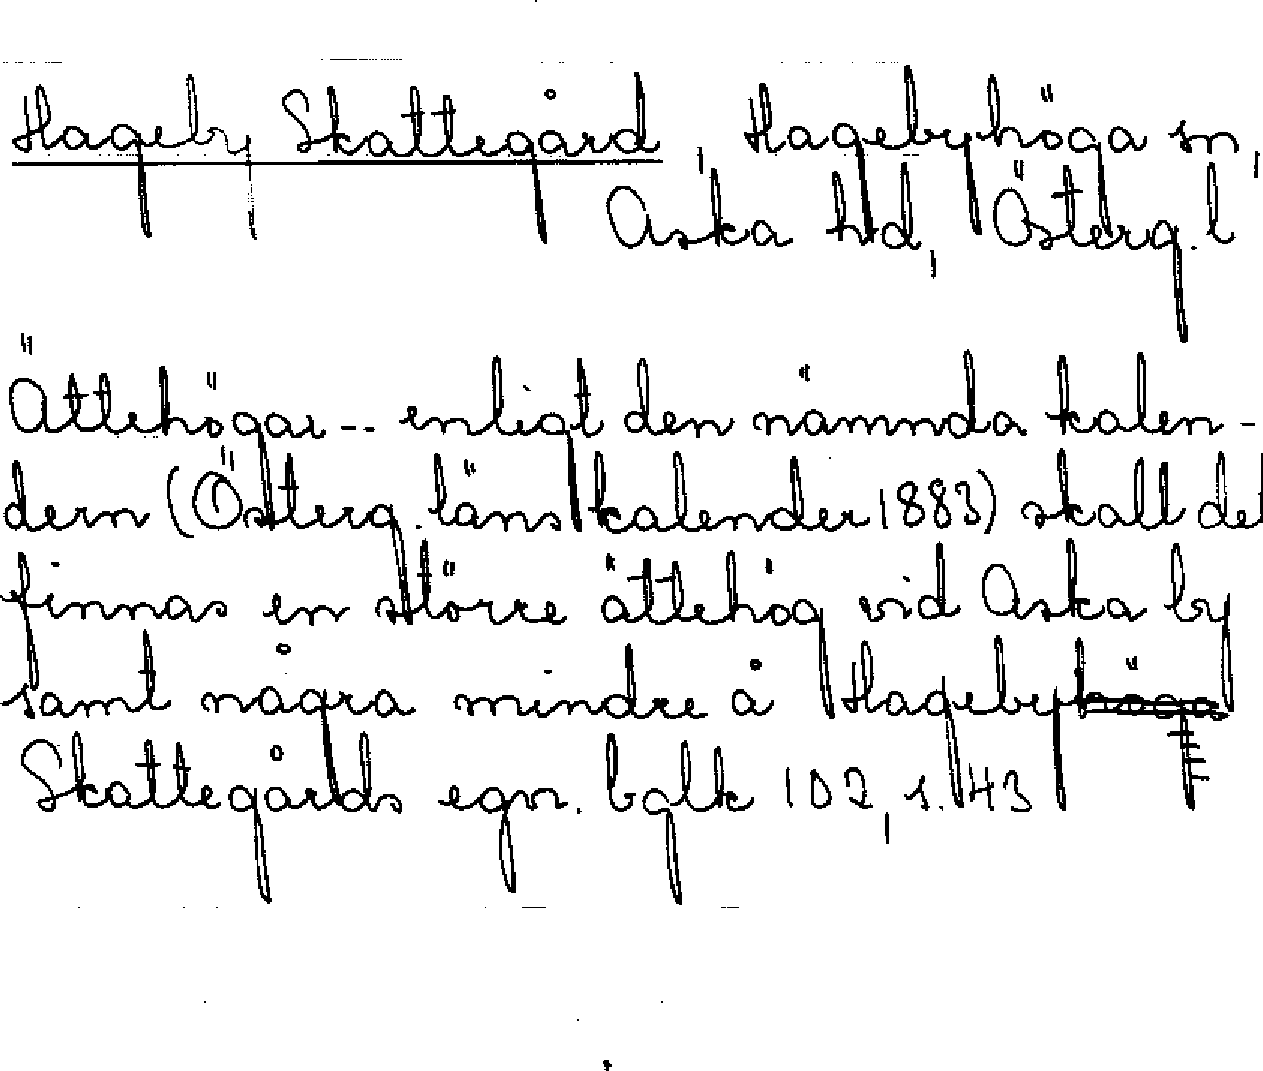 Hageby Skattegård, Hagebyhöga sn,
Aska hd, Österg. l
Ättehögar -- enligt den nämnda kalen-
dern (Österg. läns kalender 1883) skall de
finnas en större ättehög vid Aska by
samt några mindre å Hagebyhöga
Skattegårds egor. balk 102, s. 43